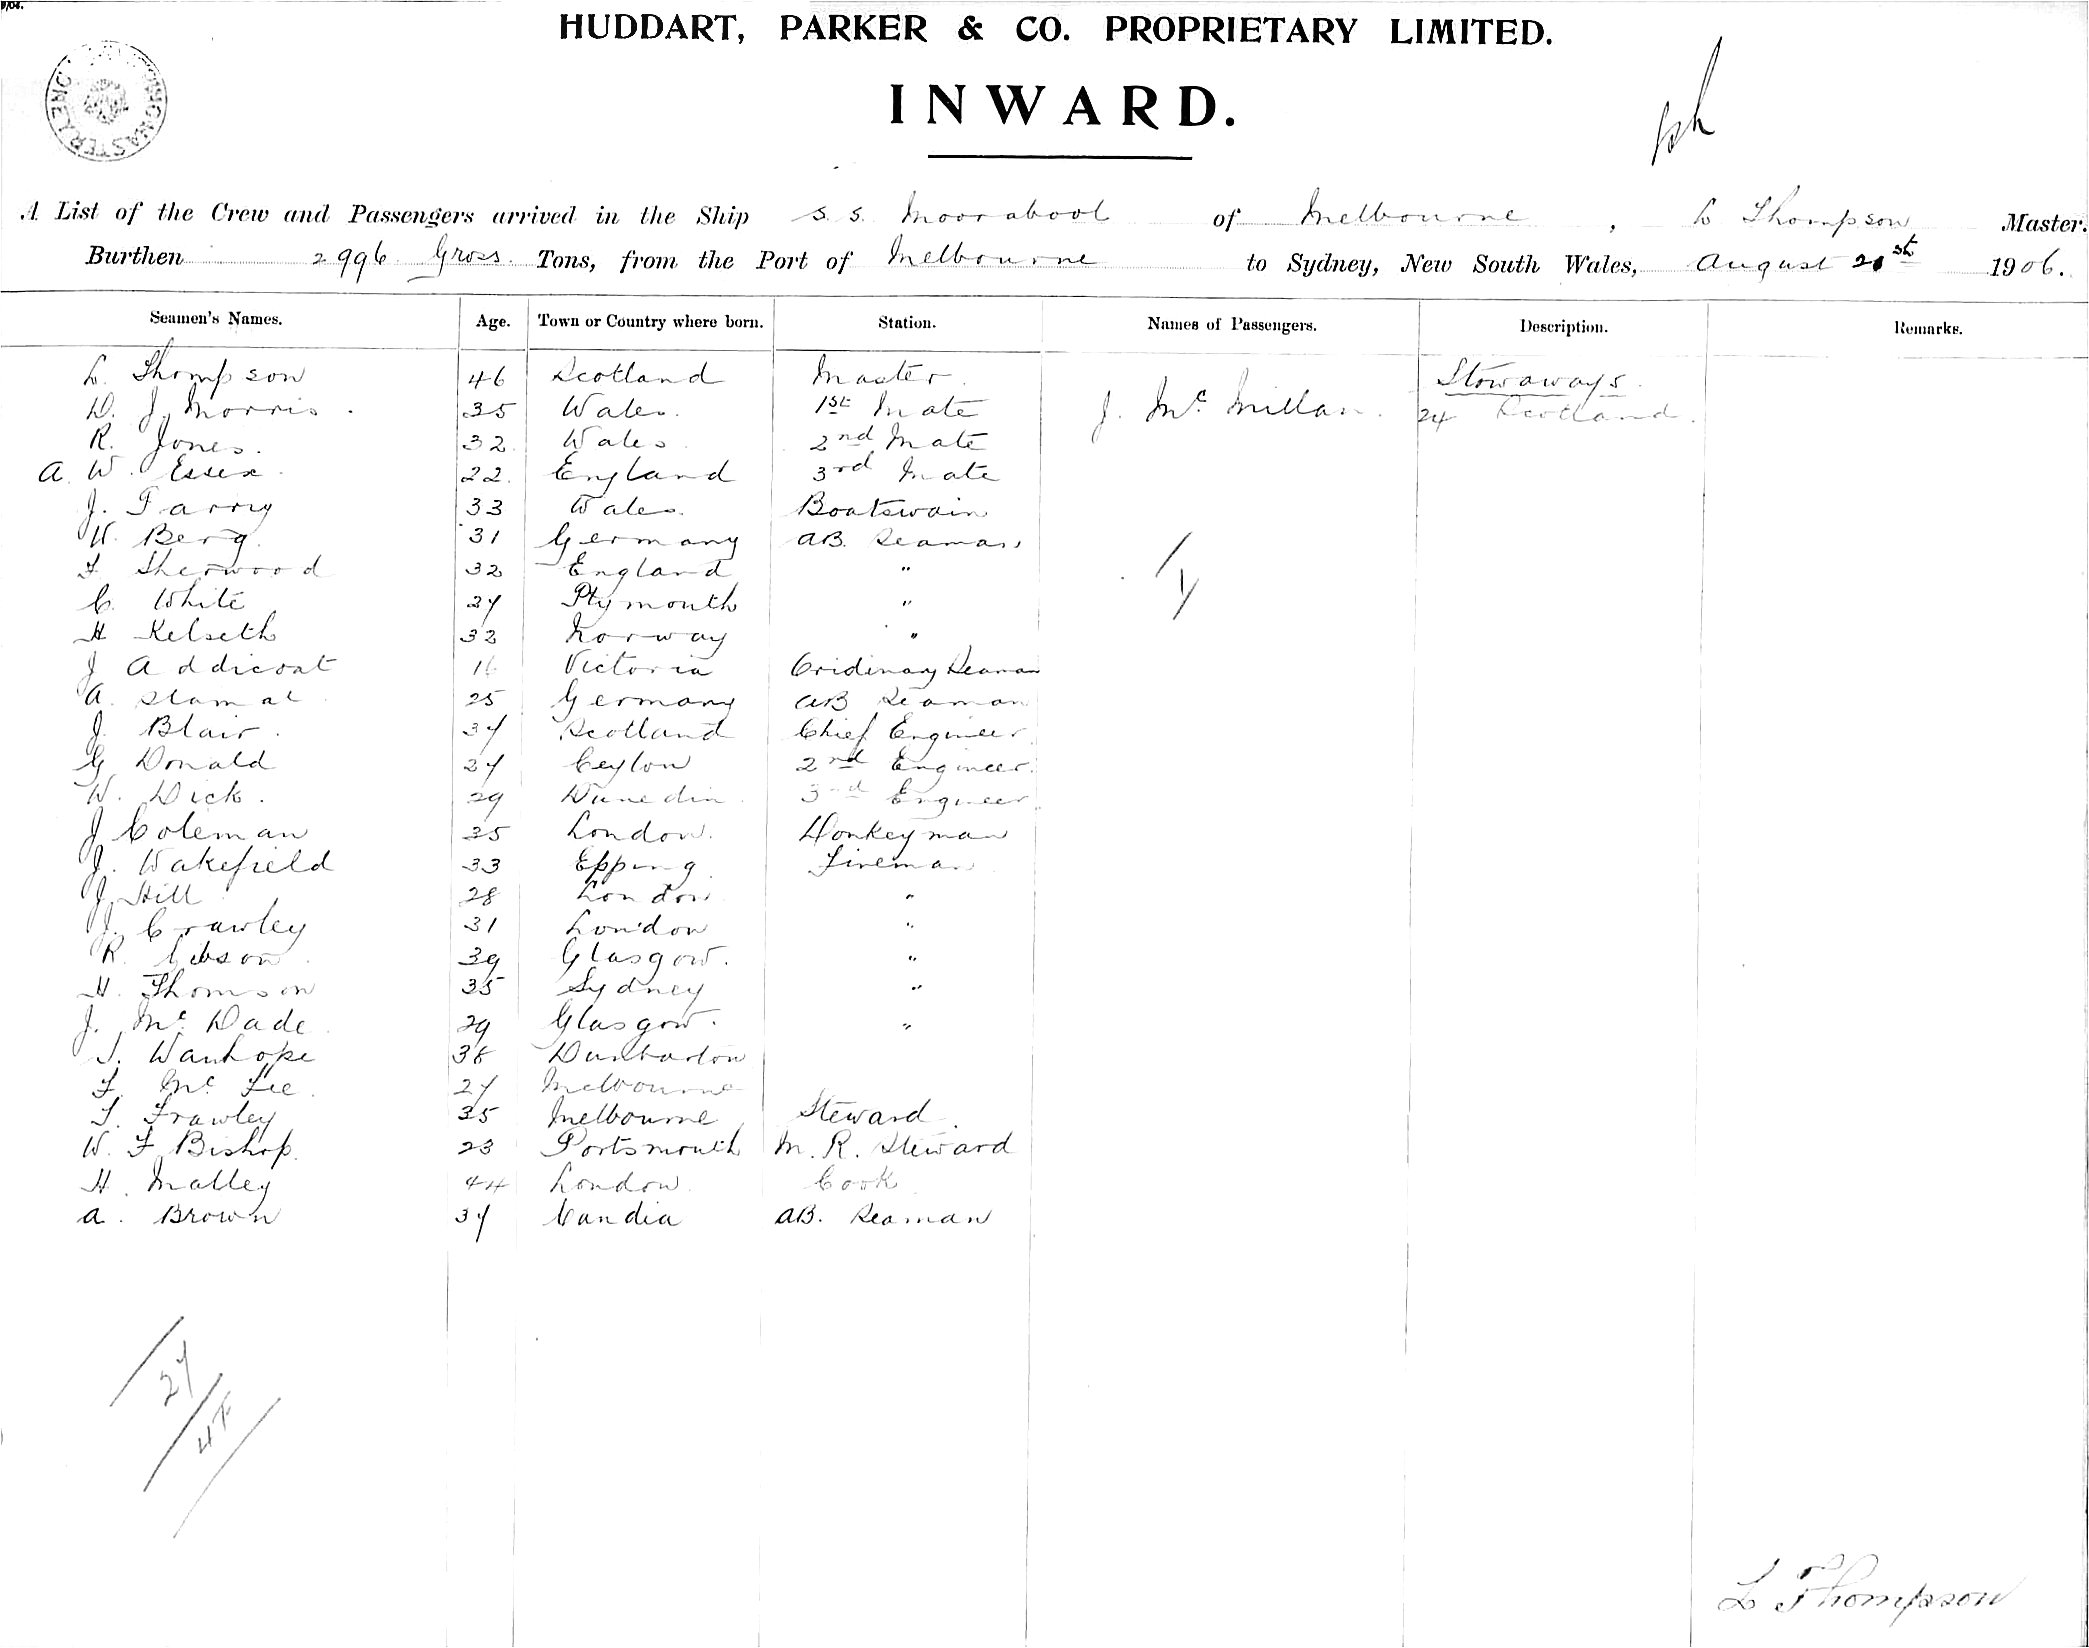 HUDDART, PARKER & CO. PROPRIETARY LIMITED.
INWARD.
A List of the Crew and Passengers arrived in the Ship S. S. Moorabool of Melbourne, L Thompson Master.
Burthen 2996 Gross Tons, from the Port of Melbourne to Sydney, New South Wales, August 21st 1906.
Seamen's Names. Age. Town or Country where born. Station. Names of Passengers. Description. Remarks.
L. Thompson 46 Scotland Master Stowaways
D. J. Morris 35 Wales 1st Mate J. McMillan 24 Scotland
R. Jones 32 Wales 2nd Mate
A. W. Essex 22 England 3rd Mate
J. Parry 33 Wales Boatswain
W. Berg 31 Germany AB. Seaman
F Sherwood 32 England "
C. White 27 Plymouth "
H Kelseth 32 Norway "
J Addicoat 16 Victoria Oridinary Seaman
A. Stamal 25 Germany AB Seaman
J. Blair 37 Scotland Chief Engineer
G Donald 27 Ceylon 2nd Engineer.
W. Dick. 29 Dunedin 3rd Engineer
J Coleman 35 London. Donkeyman
J. Wakefield 33 Epping Fireman
J. Hill 28 London "
J. Crawley 31 London "
R. Gibson 39 Glasgow. "
H. Thomson 35 Sydney "
J. Mc Dade 29 Glasgow. "
J. Wanhope 38 Dunbarton
F. Mc Fee 27 Melbourne
T. Frawley 35 Melbourne Steward
W. F Bishop. 23 Portsmouth M. R. Steward
H. Malley 44 London Cook
A. Brown 37 Candia AB. Seaman
27
L Thompson